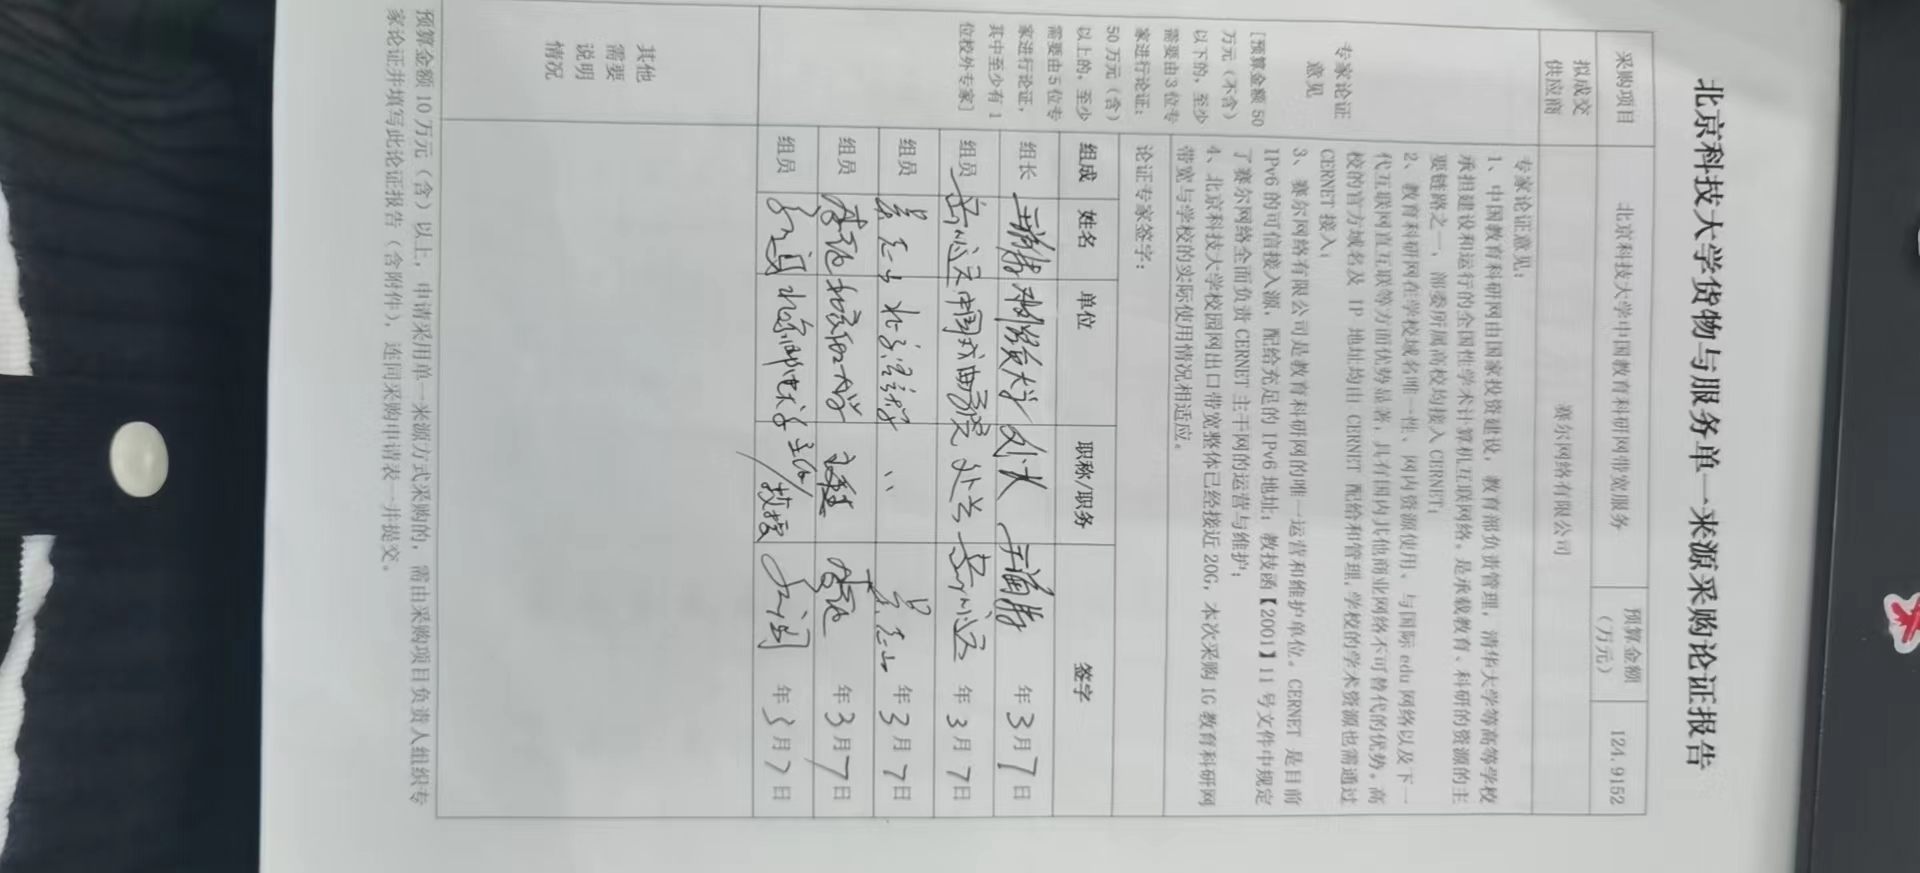 北京科技大学货物与服务单一来源采购论证报告
采购项目 北京科技大学中国教育科研网带宽服务 预算金额（万元） 124.9152
拟成交供应商 赛尔网络有限公司
专家论证意见
[预算金额 50
万元（不含）
以下的，至少
需要由 3 位专
家进行论证；
50 万元（含）
以上的，至少
需要由 5 位专
家进行论证，
其中至少有 1
位校外专家]
专家论证意见：
1、中国教育科研网由国家投资建设，教育部负责管理，清华大学等高等学校
承担建设和运行的全国性学术计算机互联网络。是承载教育、科研的资源的主
要链路之一，部委所属高校均接入 CERNET；
2、教育科研网在学校域名唯一性、网内资源使用、与国际 edu 网络以及下一
代互联网直互联等方面优势显著，具有国内其他商业网络不可替代的优势。高
校的官方域名及 IP 地址均由 CERNET 配给和管理，学校的学术资源也需通过
CERNET 接入；
3、赛尔网络有限公司是教育科研网的唯一运营和维护单位。CERNET 是目前
IPv6 的可信接入源，配给充足的 IPv6 地址；教技函【2001】11 号文件中规定
了赛尔网络全面负责 CERNET 主干网的运营与维护；
4、北京科技大学校园网出口带宽整体已经接近 20G，本次采购 1G 教育科研网
带宽与学校的实际使用情况相适应。
论证专家签字：
组成 姓名 单位 职称/职务 签字
组长 处长 年 3 月 7 日
组员 中国戏曲学院 处长 年 3 月 7 日
组员 年 3 月 7 日
组员 年 3 月 7 日
组员 北京邮电大学 主任/教授 年 3 月 7 日
其他
需要
说明
情况
预算金额 10 万元（含）以上，申请采用单一来源方式采购的，需由采购项目负责人组织专
家论证并填写此论证报告（含附件），连同采购申请表一并提交。